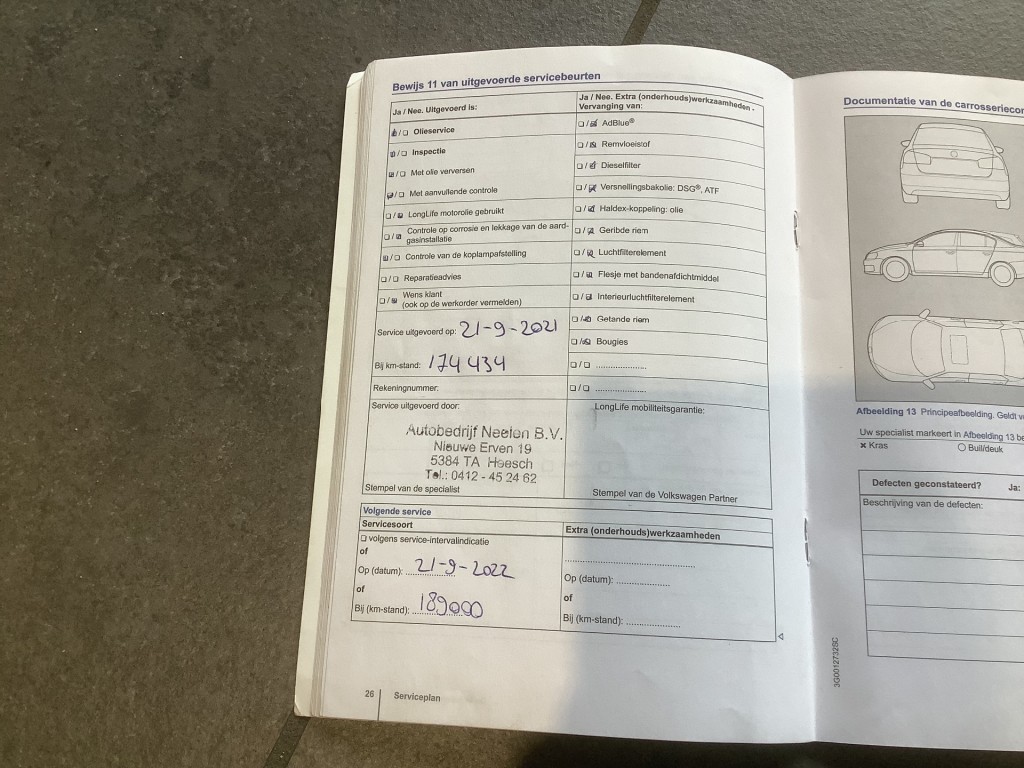 Bewijs 11 van uitgevoerde servicebeurten
Ja / Nee. Uitgevoerd is:
Olieservice
Inspectie
Met olie verversen
Met aanvullende controle
LongLife motorolie gebruikt
Controle op corrosie en lekkage van de aard-
gasinstallatie
Controle van de koplampafstelling
Reparatieadvies
Wens klant
(ook op de werkorder vermelden)
Service uitgevoerd op: 21-9-2021
Bij km-stand: 174434
Rekeningnummer:
Service uitgevoerd door:
Autobedrijf Neelen B.V.
Nieuwe Erven 19
5384 TA Heesch
Tel.: 0412 - 45 24 62
Stempel van de specialist
Ja / Nee. Extra (onderhouds)werkzaamheden -
Vervanging van:
AdBlue®
Remvloeistof
Dieselfilter
Versnellingsbakolie: DSG®, ATF
Haldex-koppeling: olie
Geribde riem
Luchtfilterelement
Flesje met bandenafdichtmiddel
Interieurluchtfilterelement
Getande riem
Bougies
LongLife mobiliteitsgarantie:
Stempel van de Volkswagen Partner
Volgende service
Servicesoort
volgens service-intervalindicatie
of
Op (datum): 21-9-2022
of
Bij (km-stand): 189000
Extra (onderhouds)werkzaamheden
Op (datum):
of
Bij (km-stand):
26 Serviceplan
Documentatie van de
Afbeelding 13 Principeafbeelding. Geldt
Uw specialist markeert in Afbeelding 13
× Kras
Buil/deuk
Defecten geconstateerd? Ja:
Beschrijving van de defecten:
3G0012732SC